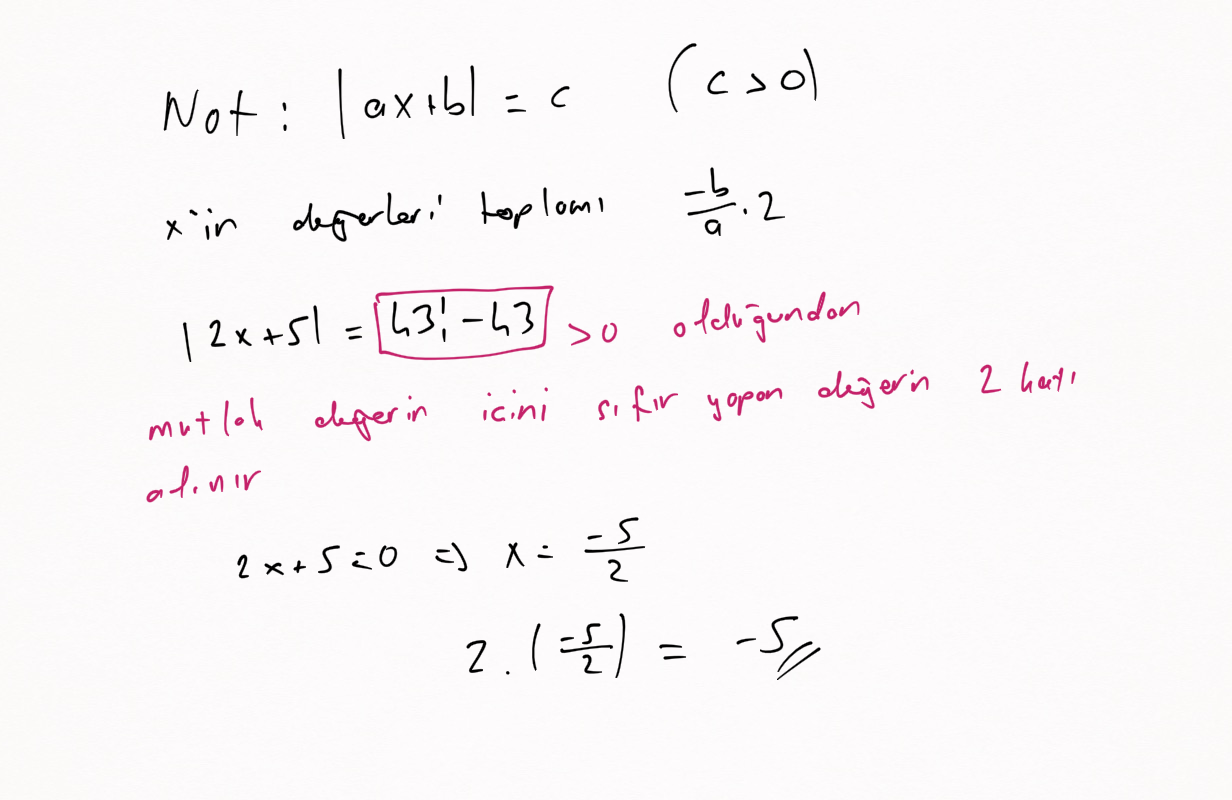 Not: |ax+b| = c (c>0)
x'in değerleri toplamı -b/a . 2
|2x+5| = 43! - 43 >0 olduğundan
mutlak değerin icini sıfır yapan değerin 2 katı
alınır
2x+5=0 => x = -5/2
2.(-5/2) = -5